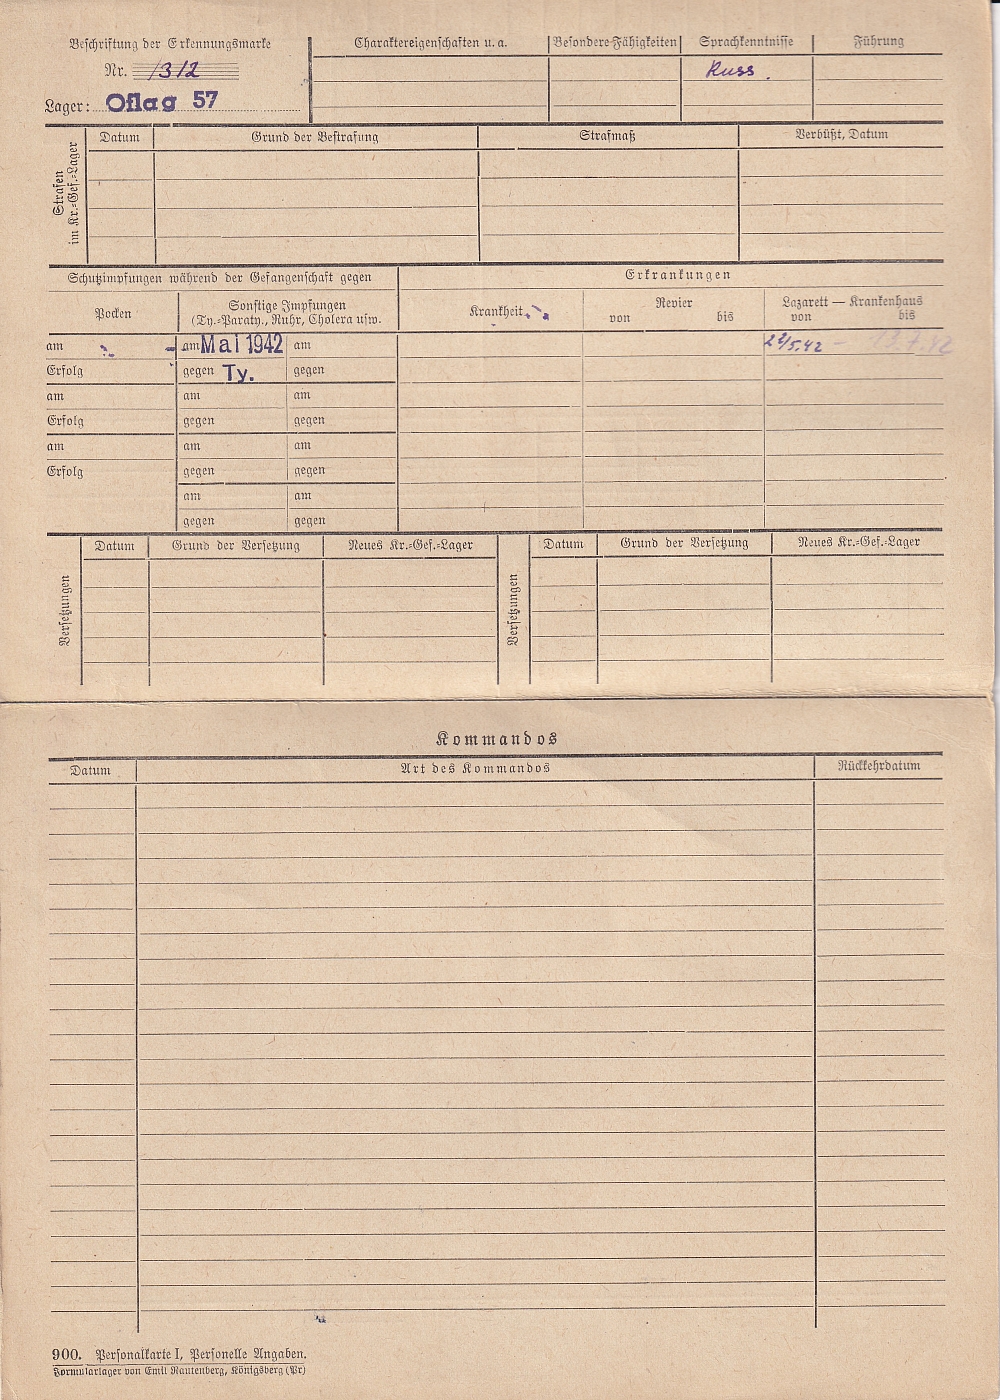 Beschriftung der Erkennungsmarke
Nr. 1312
Lager: Oflag 57
Charaktereigenschaften u. a.
Besondere Fähigkeiten
Sprachkenntnisse
Führung
Russ.
Strafen im Kr.=Gef.=Lager
Datum
Grund der Bestrafung
Strafmaß
Verbüßt, Datum
Schutzimpfungen während der Gefangenschaft gegen
Erkrankungen
Pocken
Sonstige Impfungen
(Ty.=Paraty., Ruhr, Cholera usw.
Krankheit
Revier
von bis
Lazarett — Krankenhaus
von bis
am am Mai 1942 am
22/5.42 –
Erfolg gegen Ty. gegen
am am am
Erfolg gegen gegen
am am am
Erfolg gegen gegen
am am
gegen gegen
Versetzungen
Datum Grund der Versetzung Neues Kr.=Gef.=Lager
Versetzungen
Datum Grund der Versetzung Neues Kr.=Gef.=Lager
Kommandos
Datum Art des Kommandos Rückkehrdatum
900. Personalkarte I, Personelle Angaben.
Formularlager von Emil Rautenberg, Königsberg (Pr)